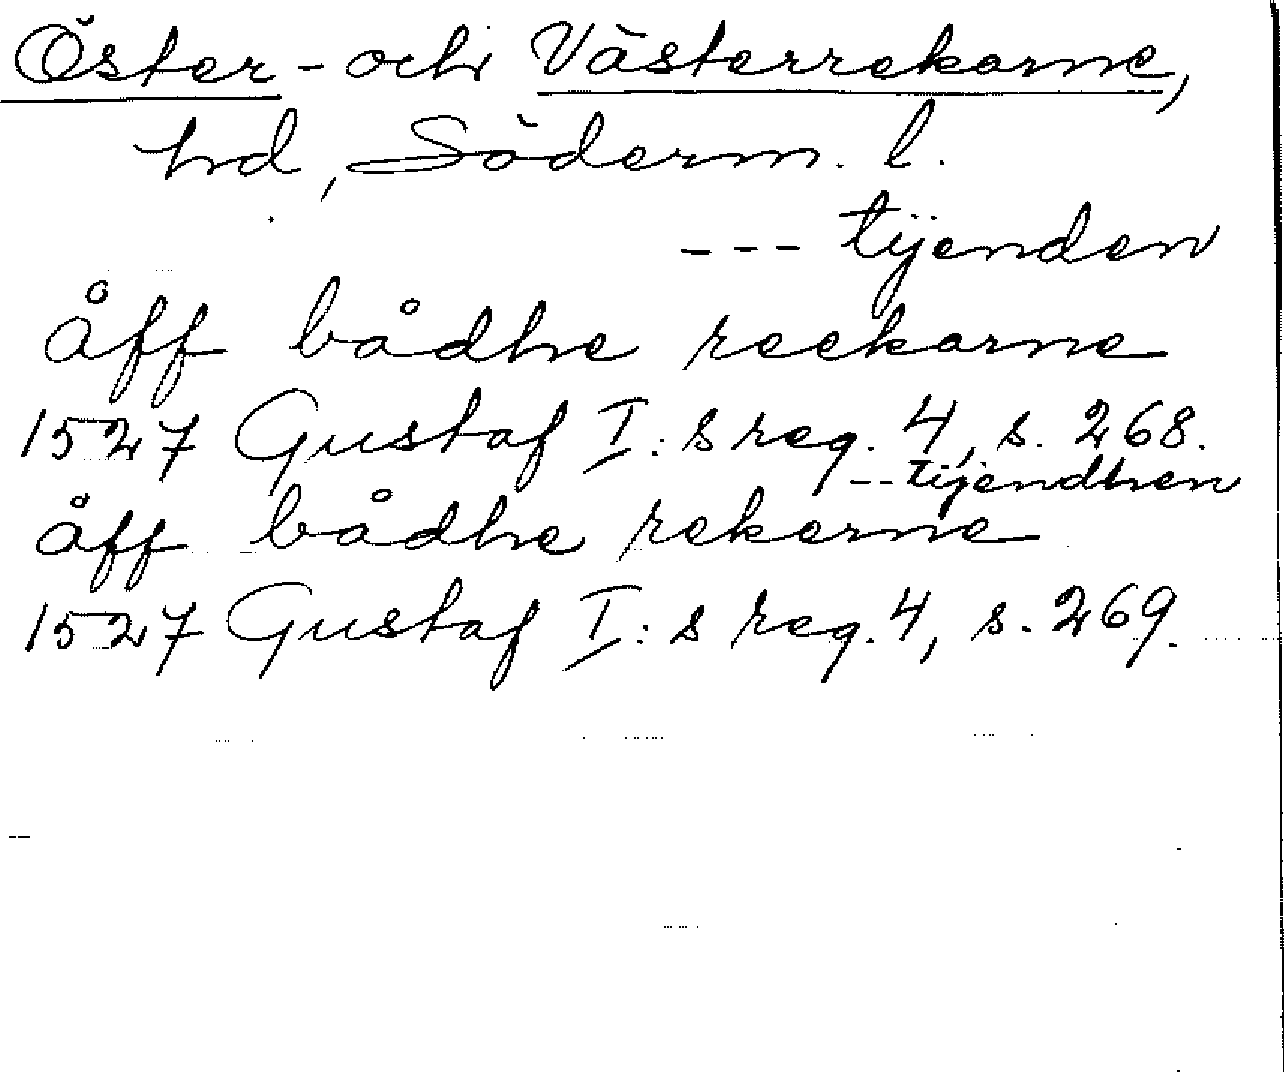 Öster- och Västerrekarne,
hd, Söderm. l.
--- tijenden
åff bådhe reekarne
1527 Gustaf I:s reg. 4, s. 268.
-- tijendhen
åff bådhe rekerne
1527 Gustaf I:s reg. 4, s. 269.